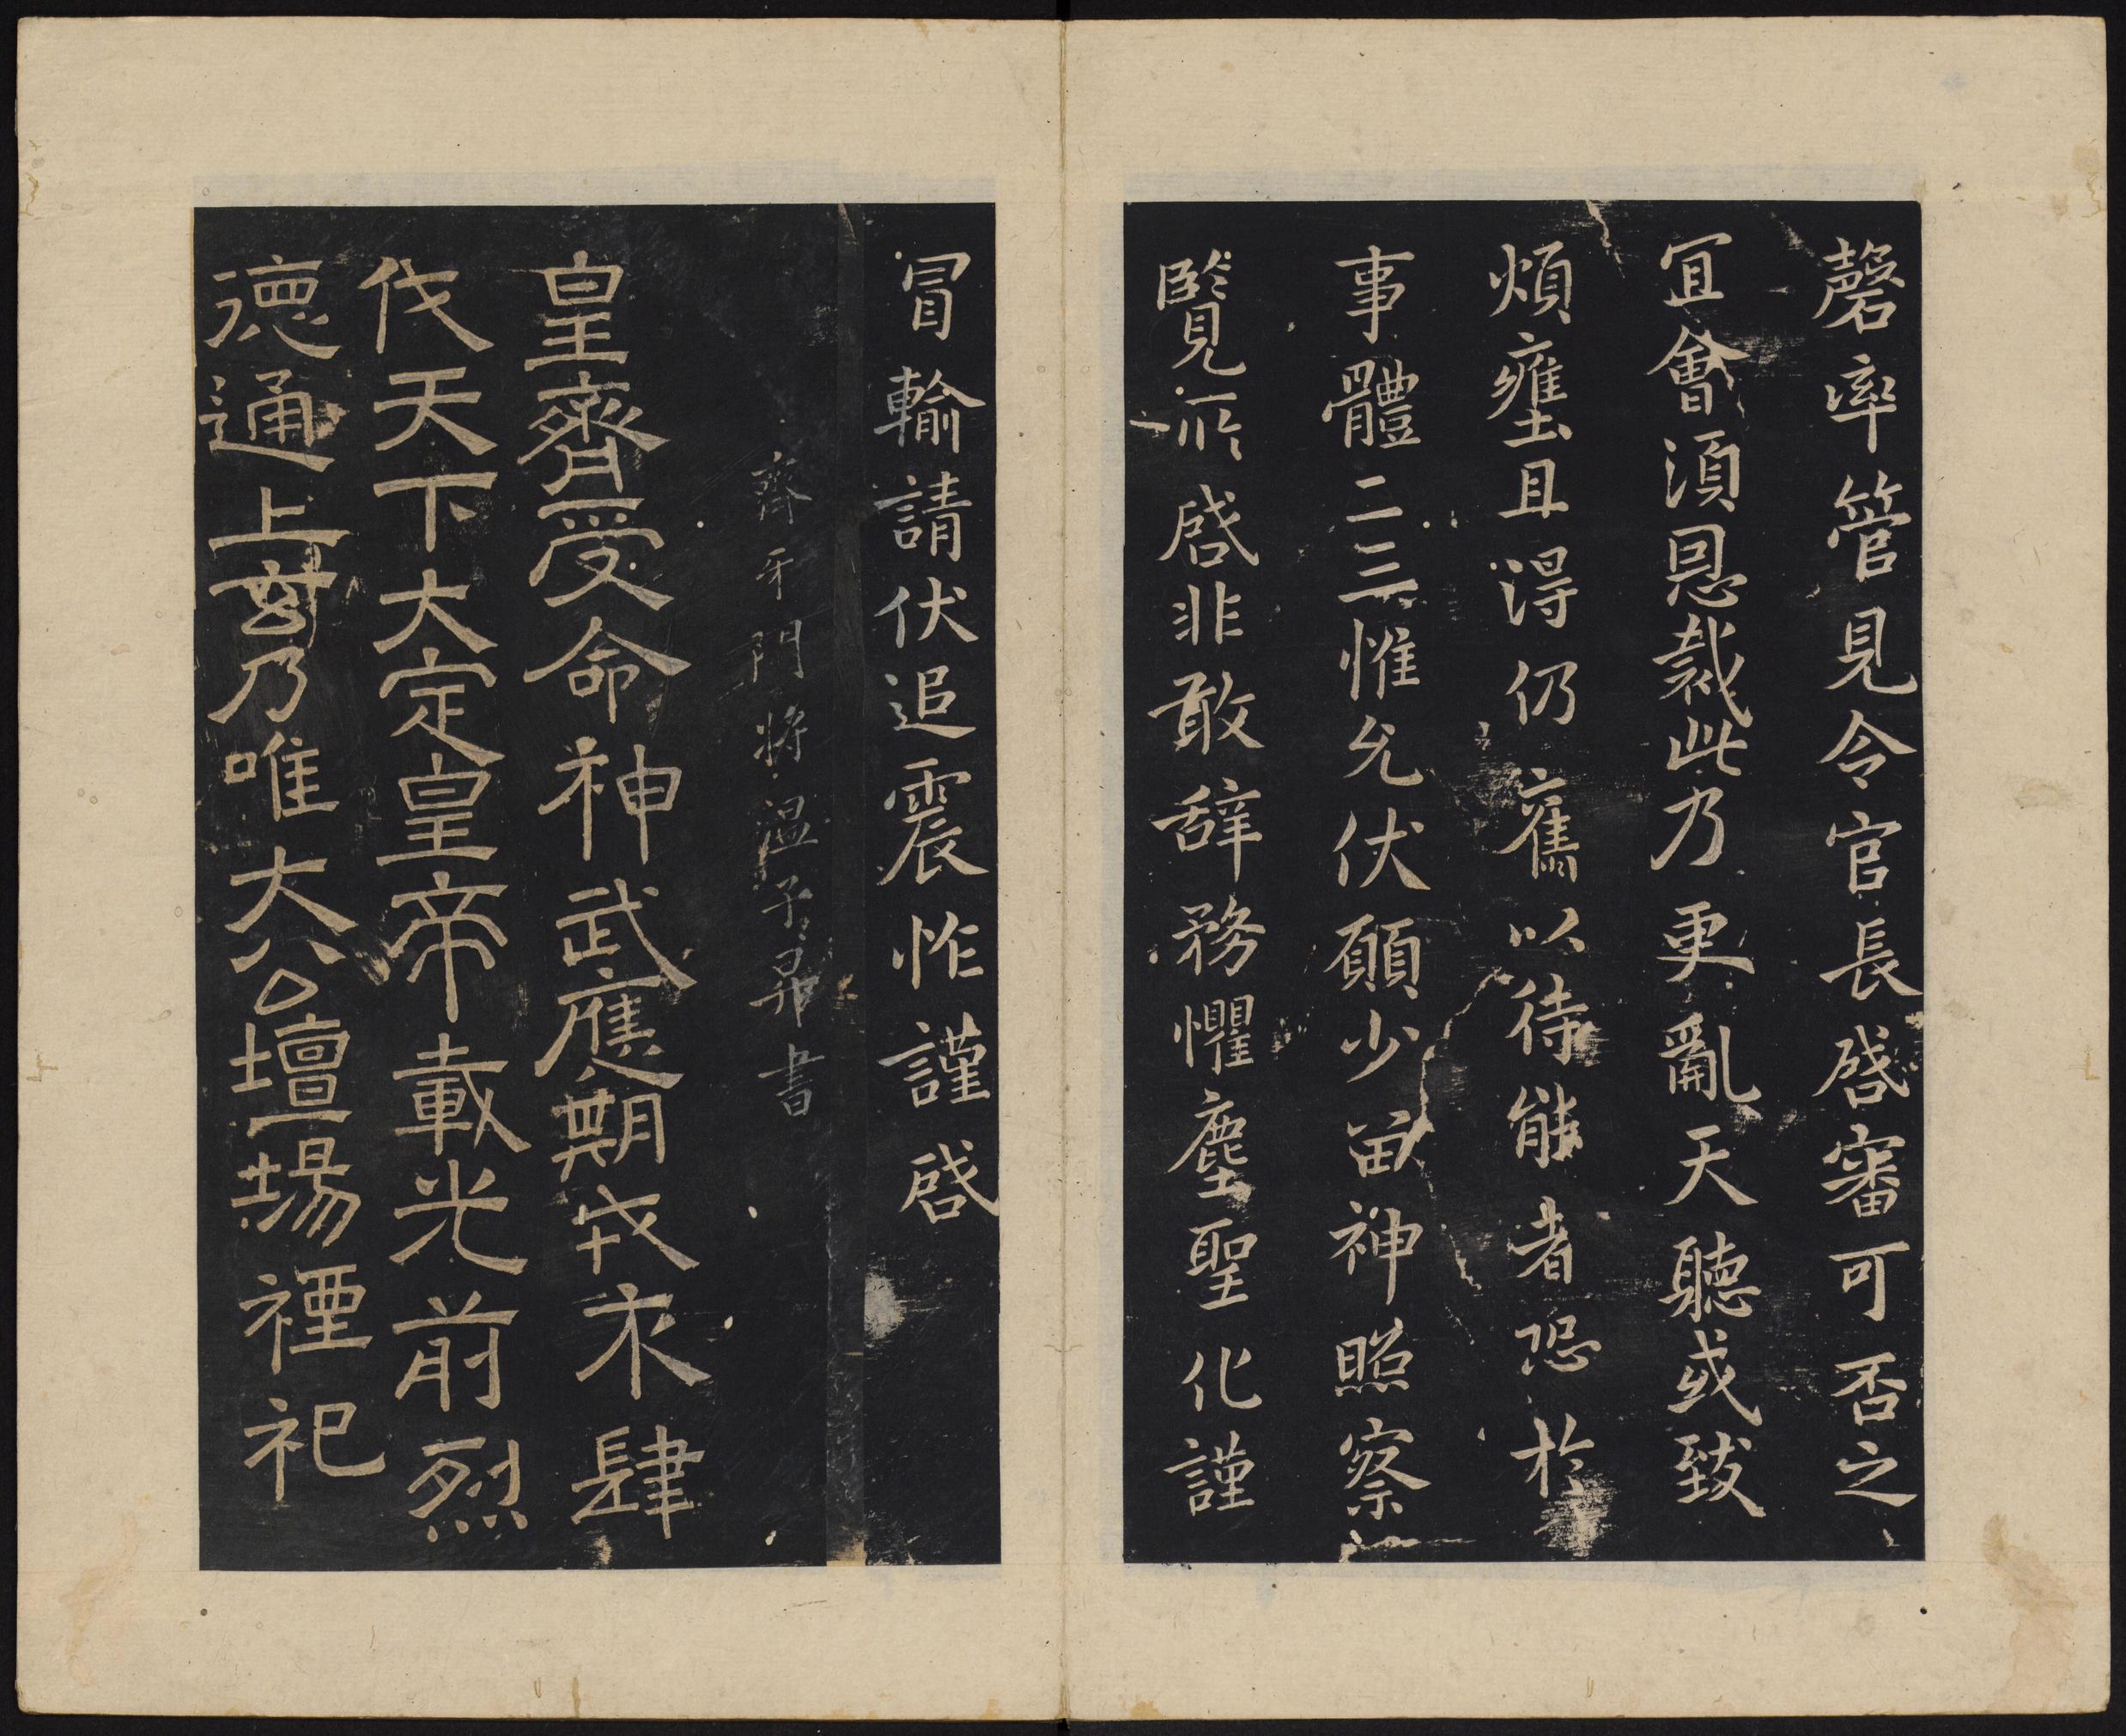 磬率管見令官長啓審可否之
宜會須恩裁此乃更亂天聽或致
煩壅且淂仍舊以待能者恐於
事體二三惟允伏願少留神照察
覽所啓非敢辞務懼塵聖化謹
冒輸請伏追震怍謹啓
齊牙門將温子昇書
皇齊受命神武應期戎衣肆
伐天下大定皇帝載光前烈
德通上玄乃唯大公壇場禋祀